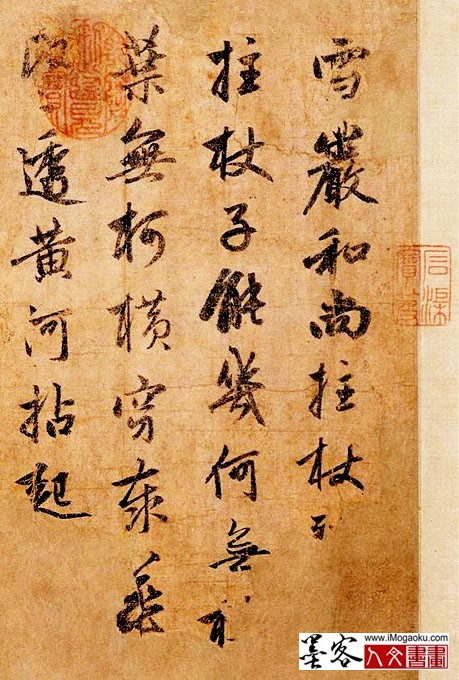 雪巖和尚拄杖
拄杖子能幾何無
葉無柯橫穿泰華
透黃河拈起
墨客
www.iMogaoku.com
人文書畫